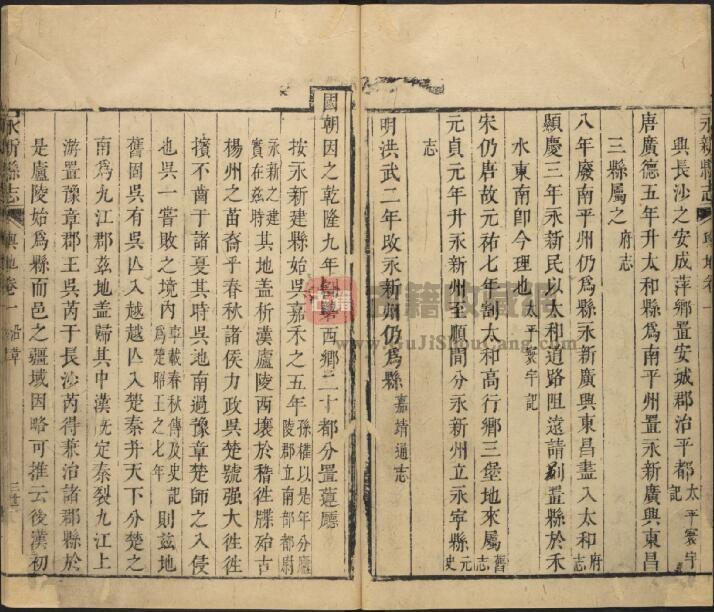 永新縣志 輿地卷一
興長沙之安成萍鄉置安城郡治平都太平寰宇記
唐廣德五年升太和縣為南平州置永新廣興東昌
三縣屬之府志
八年廢南平州仍爲縣永新廣興東昌盡入太和府志
顯慶三年永新民以太和道路阻遠請别置縣於禾
水東南卽今理也太平寰宇記
宋仍唐故元祐七年割太和高行鄉三堡地來屬舊志
元貞元年升永新州至順間分永新州立永寧縣元史
志
明洪武二年改永新州仍爲縣嘉靖通志
國朝因之乾隆九年割第西鄉二十都分置蓮廳
按永新建縣始吳嘉禾之五年孫權以是年分廬陵郡立南部都尉永新之建實在茲時
其地盖析漢廬陵西壤於稽徃牒殆古
楊州之苗裔乎春秋諸侯力政吳楚號强大徃徃
擯不齒于諸夏其時吳池南過豫章楚師之入侵
也吳一嘗敗之境內事載春秋傳及史記爲楚昭王之七年則兹地
舊固吳有吳旣入越越旣入楚秦并天下分楚之
南爲九江郡兹地歸其中漢旣定秦裂九江上
游置豫章郡王吳芮于長沙芮得兼治諸郡縣於
是廬陵始爲縣而邑之疆域因略可推云後漢初
永新縣志 輿地卷一 沿革
古籍收藏網
www.GuJiShouCang.com